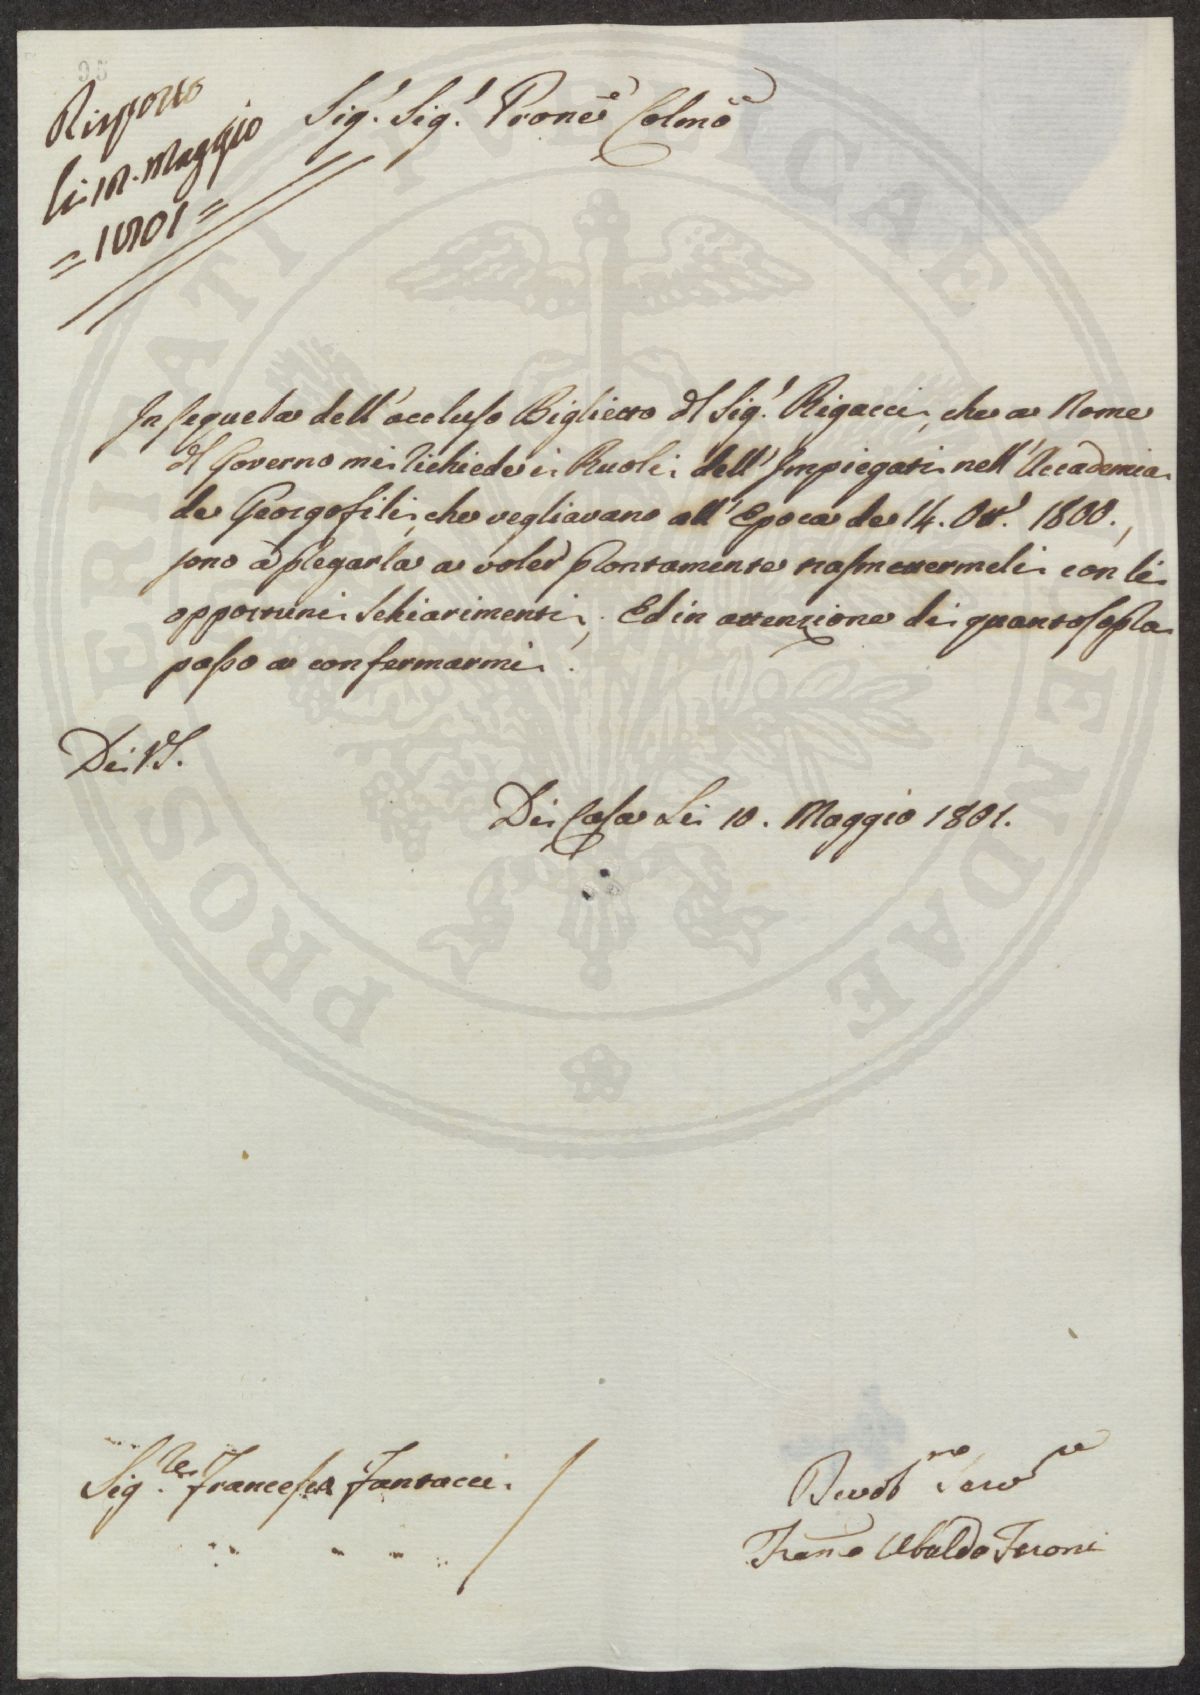 95
Risposto
li 10. Maggio
= 1801 =
Sig.r Sig.r Prone Colmo
In sequela dell'accluso Biglietto dl Sig.r Rigacci, che a Nome
dl Governo mi richiede i Ruoli dell'Impiegati nell'Accademia
de Georgofili, che vegliavano all'Epoca de 14. Ott.e 1800.,
sono à pregarla a voler prontamente trasmettermeli con li
opportuni schiarimenti, Ed in attenzione di quanto sopra
passo a confermarmi.
Di VS.
Di Casa Li 10. Maggio 1801.
Sig.re Francesco Fantacci.
Devot.mo Serv.re
Fran.co Ubaldo Feroni
PROSPERITATI PUBLICAE AUGENDAE